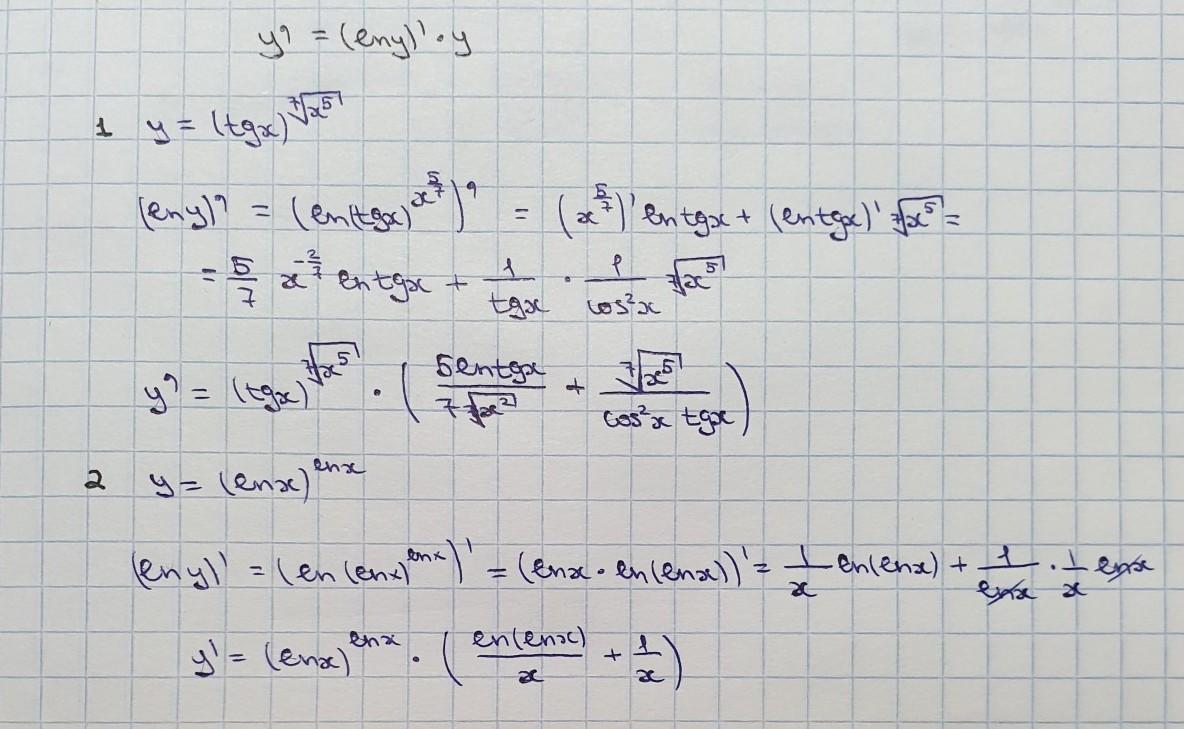 y' = (ln y)' · y
1 y = (tg x)^{\sqrt[7]{x^5}}
(ln y)' = (ln(tg x)^{x^{5/7}})' = (x^{5/7})' ln tg x + (ln tg x)' \sqrt[7]{x^5} =
= 5/7 x^{-2/7} ln tg x + 1/(tg x) · 1/(cos²x) \sqrt[7]{x^5}
y' = (tg x)^{\sqrt[7]{x^5}} · ( (5 ln tg x)/(7 \sqrt[7]{x^2}) + \sqrt[7]{x^5}/(cos²x tg x) )
2 y = (ln x)^{ln x}
(ln y)' = (ln (ln x)^{ln x})' = (ln x · ln(ln x))' = 1/x ln(ln x) + 1/(ln x) · 1/x ln x
y' = (ln x)^{ln x} · ( ln(ln x)/x + 1/x )